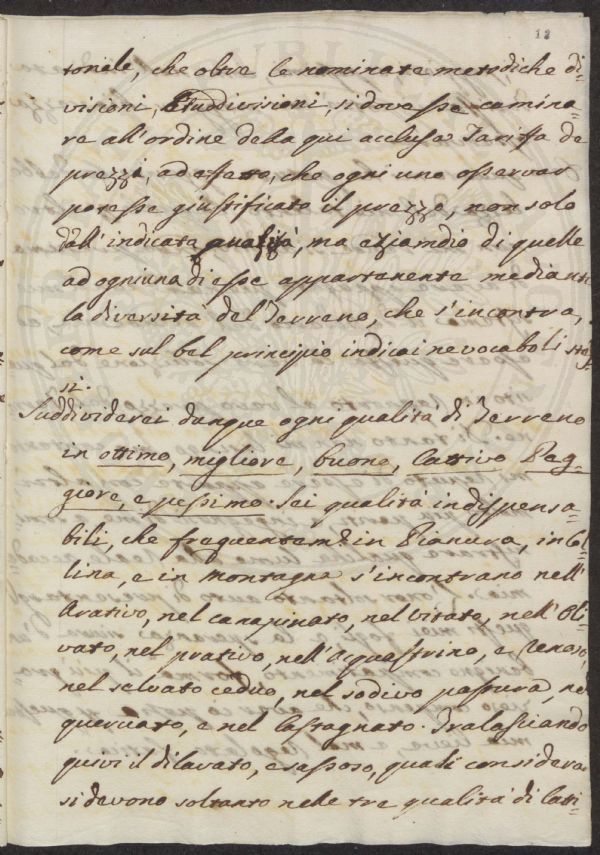 12
tonele, che oltre le nominate metodiche di=
visioni, e suddivisioni, si dovesse camina=
re all'ordine della qui acclusa Tariffa de
prezzi, ad effetto, che ogni uno osservar
potesse giustificato il prezzo, non solo
dall'indicata qualità, ma eziamdio di quelle
ad ogniuna di esse appartenente mediante
la diversità del Terreno, che s'incontra,
come sul bel principio indicai ne vocaboli stes=
si.
Suddividerei dunque ogni qualità di Terreno
in ottimo, migliore, buono, Cattivo Peg=
giore, e pessimo. Sei qualità indispensa=
bili, che frequentem.e in Pianura, in Col=
lina, e in montagna s'incontrano nell'
Arativo, nel canapinato, nel vitato, nell'Oli=
vato, nel prativo, nell'Acquastrino, e Renoso,
nel selvato ceduo, nel sodivo pastura, nel
quercuato, e nel Castagnato. Tralasciando
quivi il dilavato, e sassoso, quali considerar
si devono soltanto nelle tre qualità di Catti=